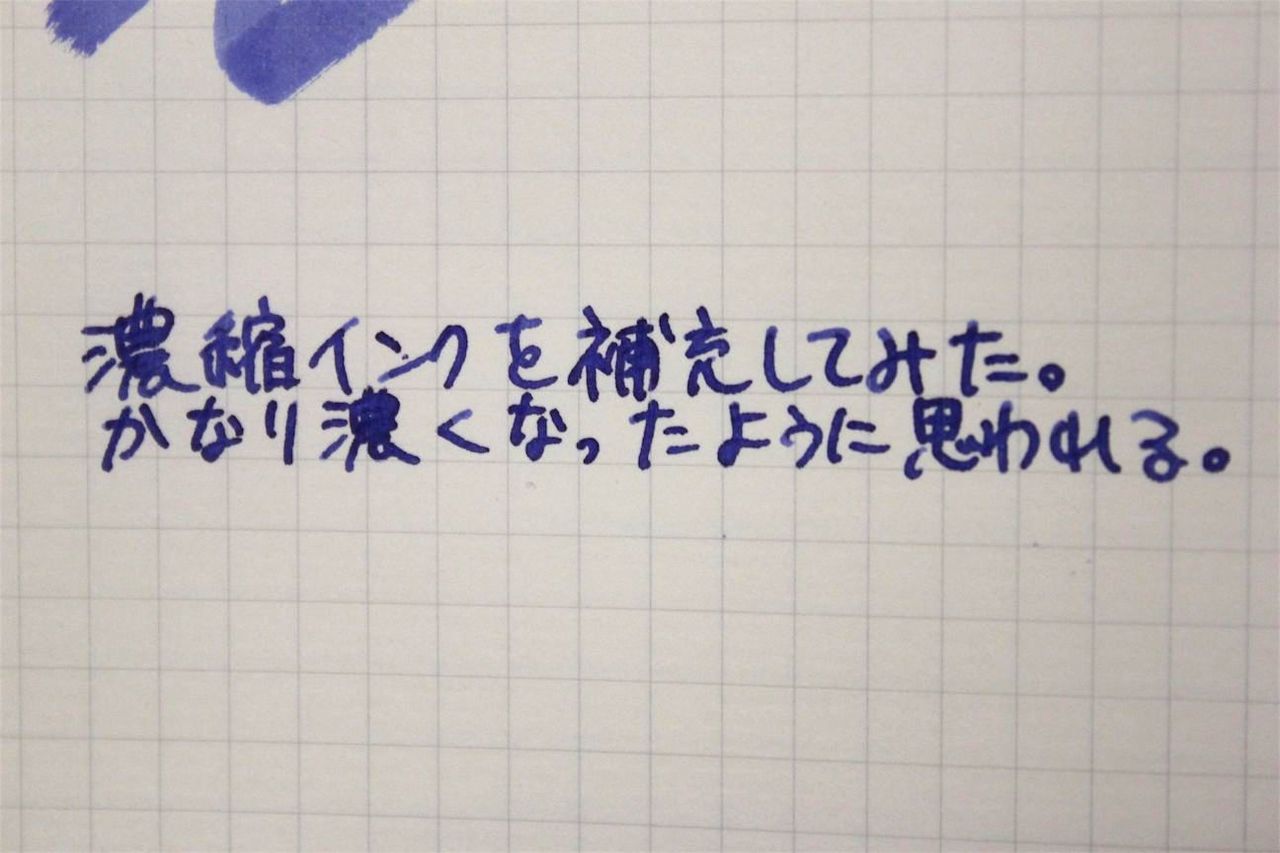 濃縮インクを補充してみた。
かなり濃くなったように思われる。